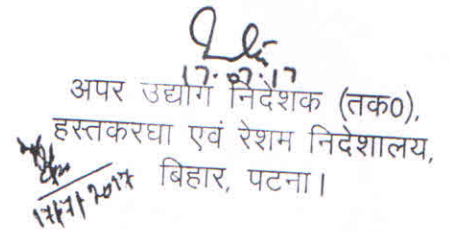 17.07.17
अपर उद्योग निदेशक (तक0),
हस्तकरघा एवं रेशम निदेशालय,
बिहार, पटना।
17/7/2017